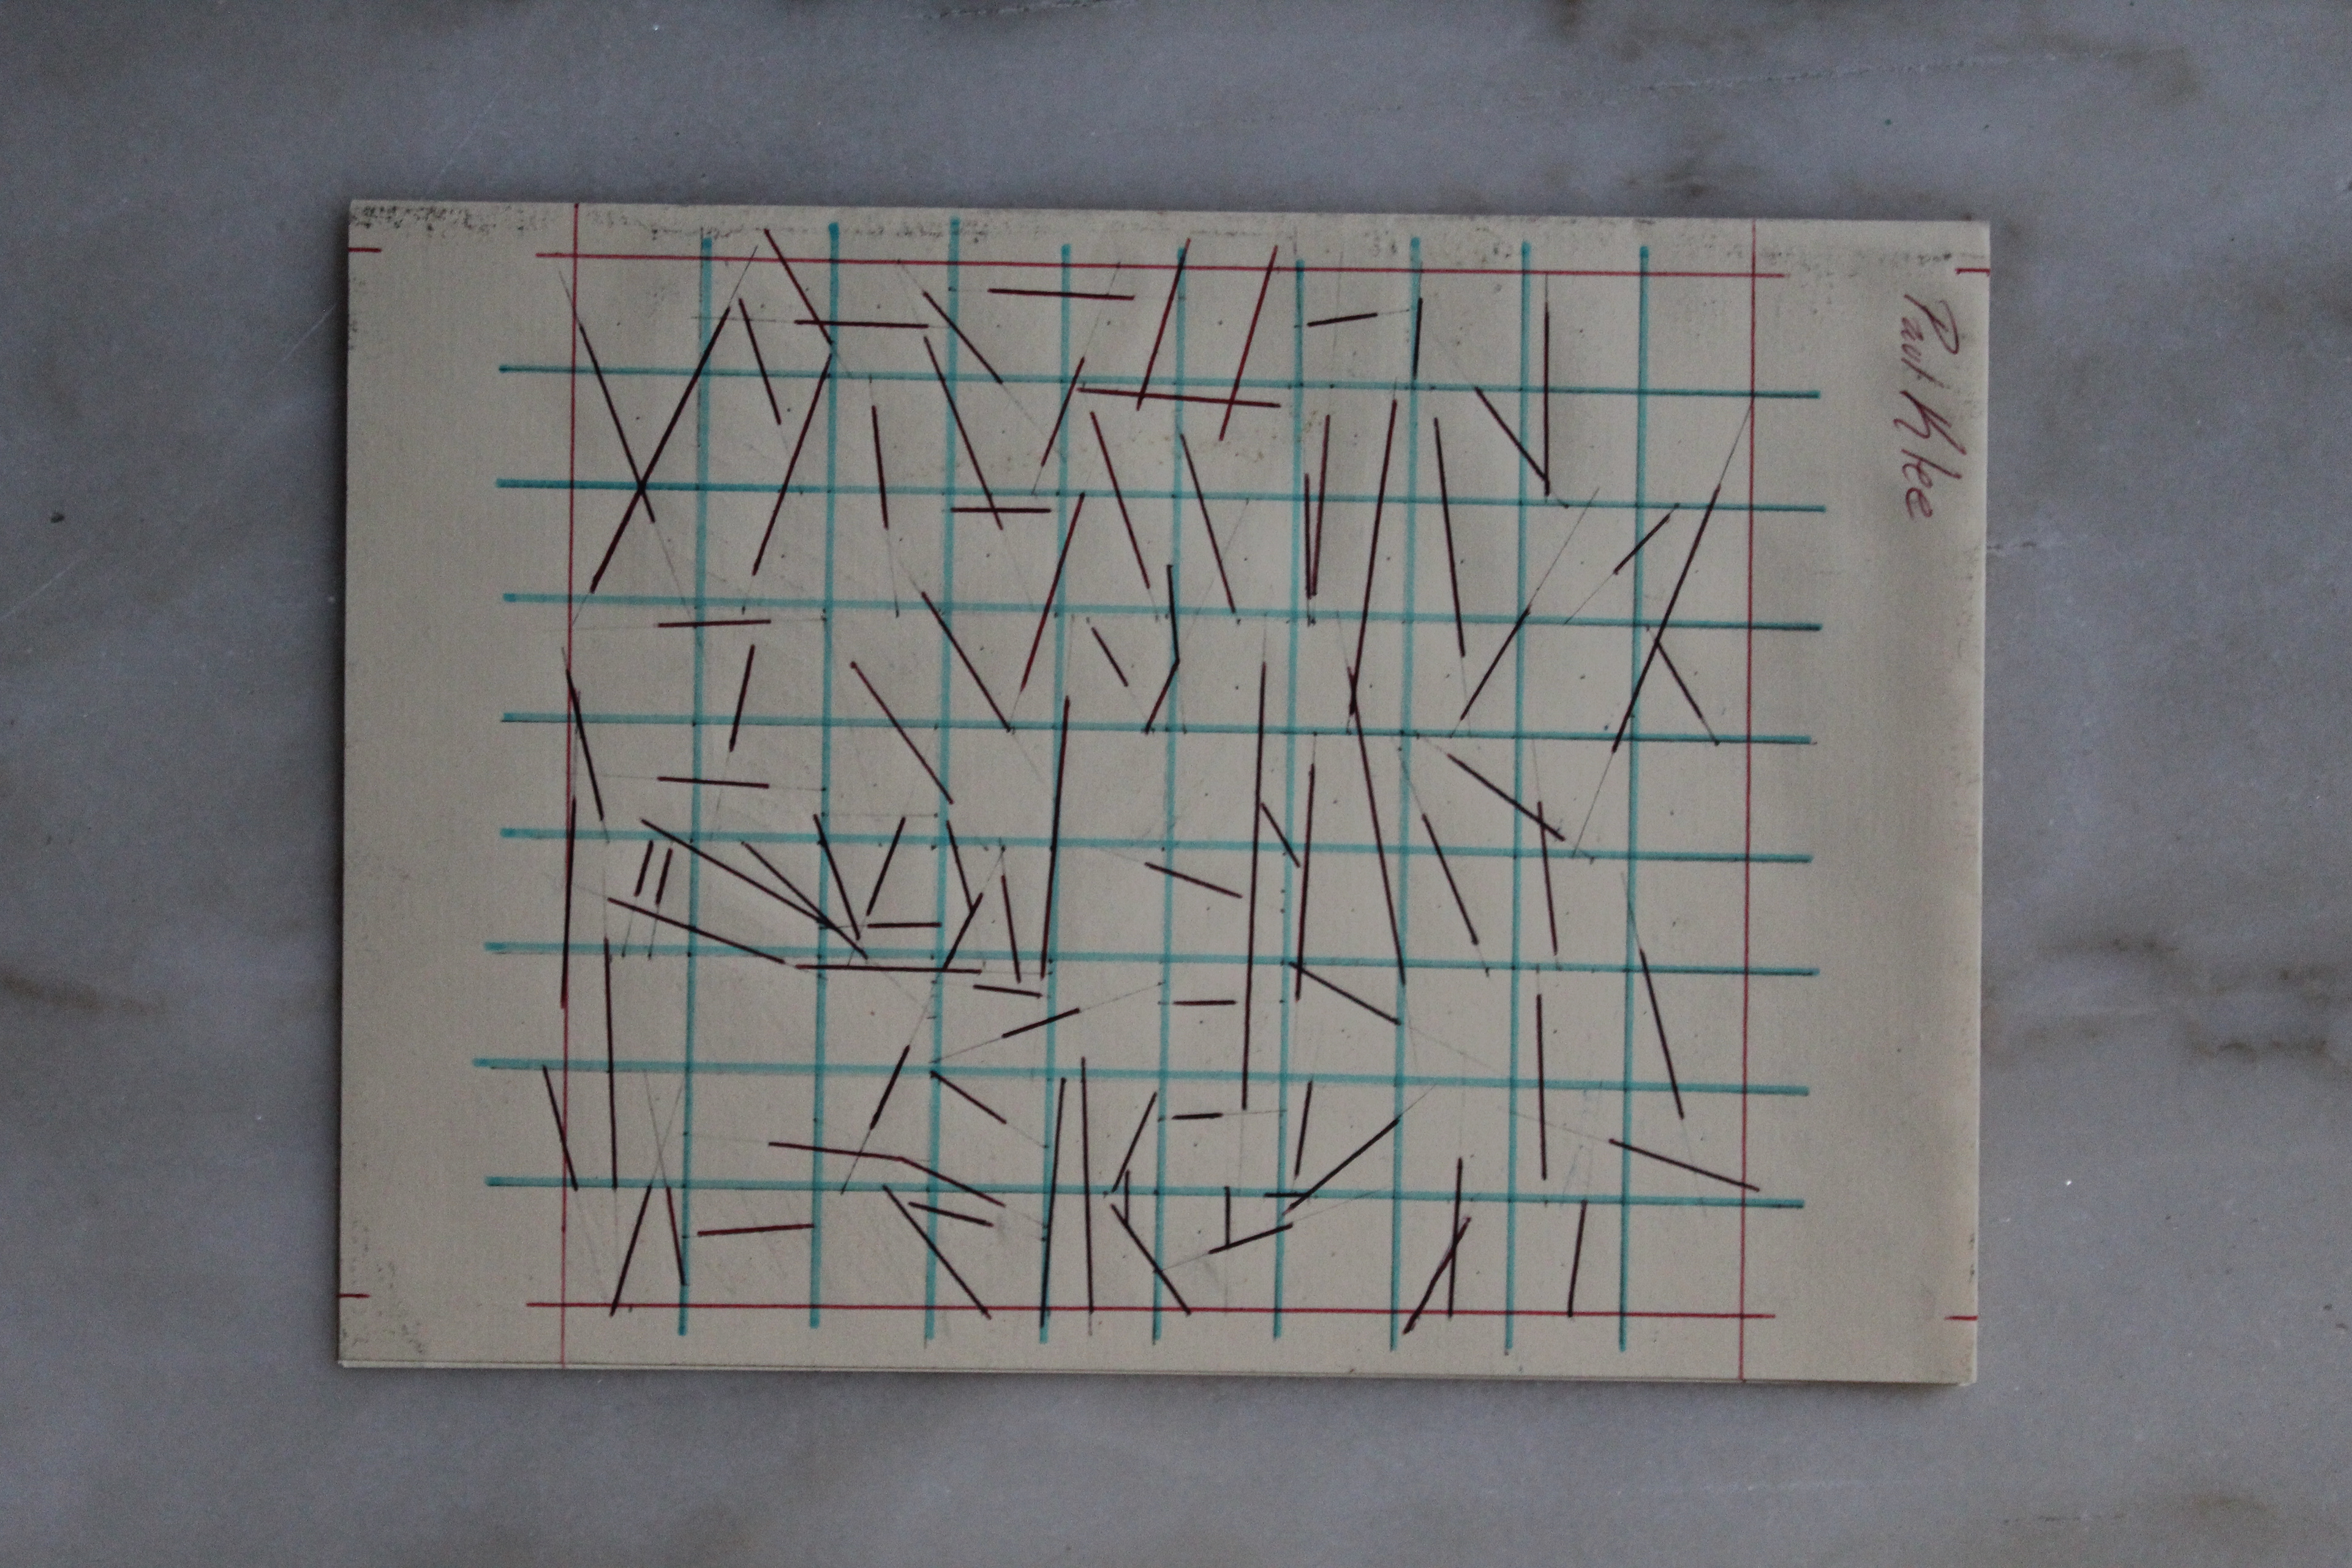 Paul Klee